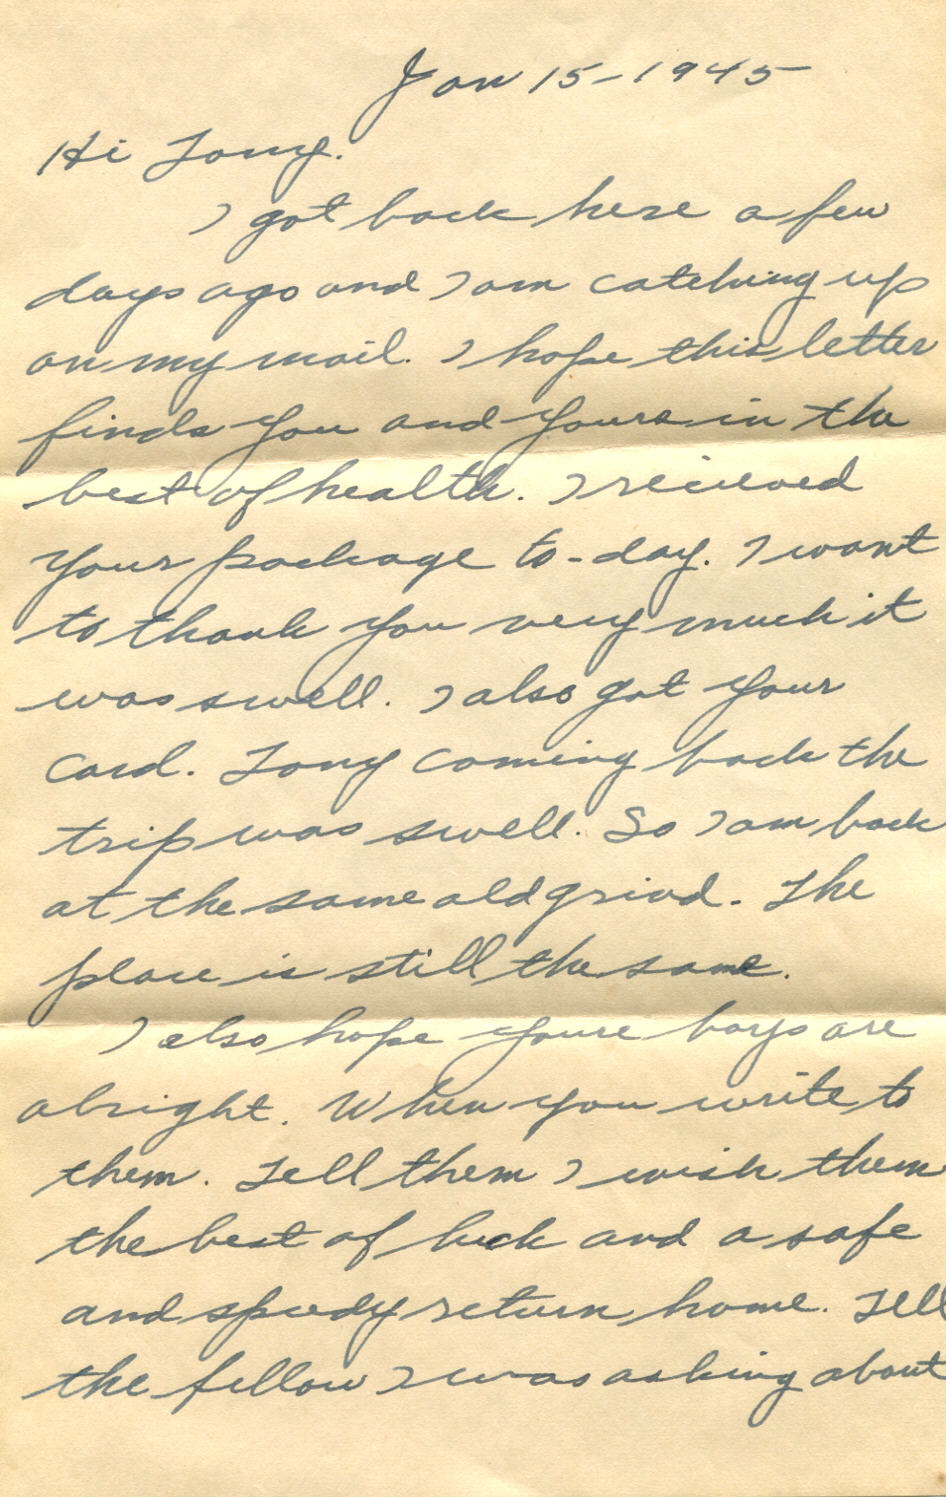 Jan 15-1945
Hi Tony.
I got back here a few
days ago and I am catching up
on my mail. I hope this letter
finds you and yours in the
best of health. I recieved
your package to-day. I want
to thank you very much it
was swell. I also got your
card. Tony coming back the
trip was swell. So I am back
at the same old grind. The
place is still the same.
I also hope youre boys are
alright. When you write to
them. Tell them I wish them
the best of luck and a safe
and speedy return home. Tell
the fellow I was asking about